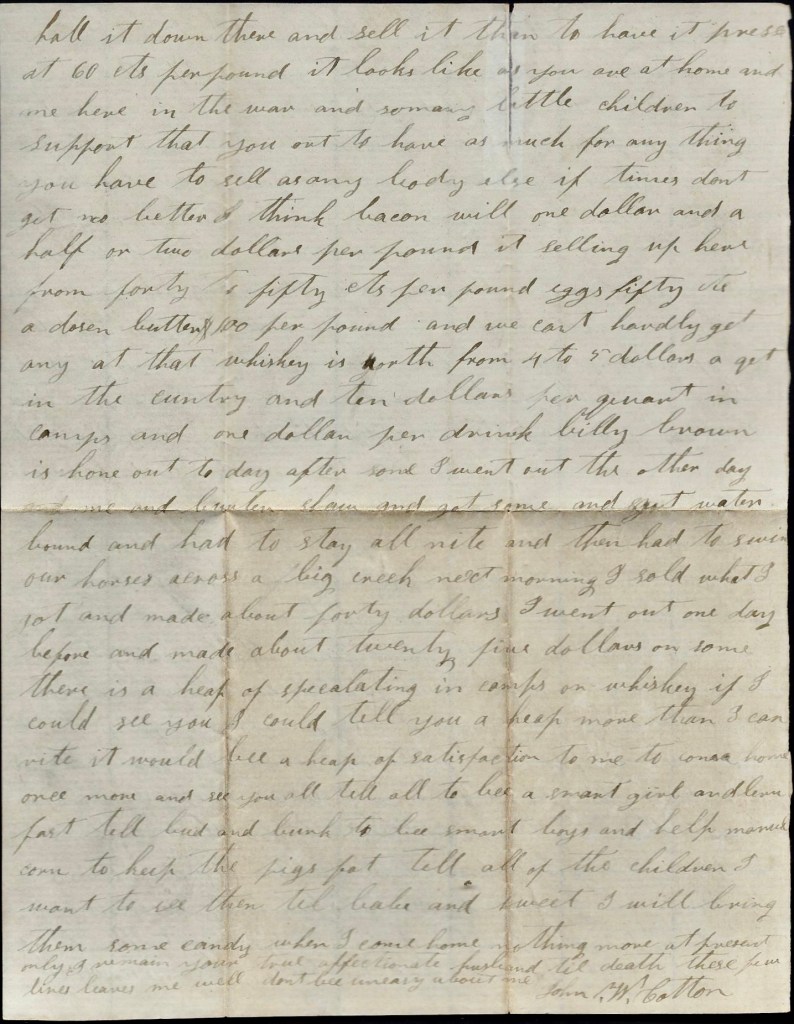 hall it down there and sell it than to have it prese
at 60 cts per pound it looks like as you are at home and
me here in the war and somany little children to
support that you ort to have as much for any thing
you have to sell as any body else if times dont
get no better I think bacon will one dollar and a
half or two dollars per pound it selling up here
from forty to fifty cts per pound eggs fifty cts
a dosen butter $1.00 per pound and we cant hardly get
any at that whiskey is worth from 4 to 5 dollars a
in the cuntry and ten dollars per quart in
camps and one dollar per drink billy brown
is gone out to day after some I went out the other day
and me and shaw and got some and got water
bound and had to stay all nite and then had to swim
our horses across a big creek next morning I sold what I
got and made about forty dollars I went out one day
before and made about twenty five dollars on some
there is a heap of specalating in camps on whiskey if I
could see you I could tell you a heap more than I can
rite it would bee a heap of satisfaction to me to come home
once more and see you all tell all to bee a smart girl and lern
fast tell bud and bunk to bee smart boys and help
corn to keep the pigs fat tell all of the children I
want to see them tel babe and sweet I will bring
them some candy when I come home nothing more at present
only I remain your true affectionate husband til death these few
lines leaves me well dont bee uneasy about me
John W. Cotton